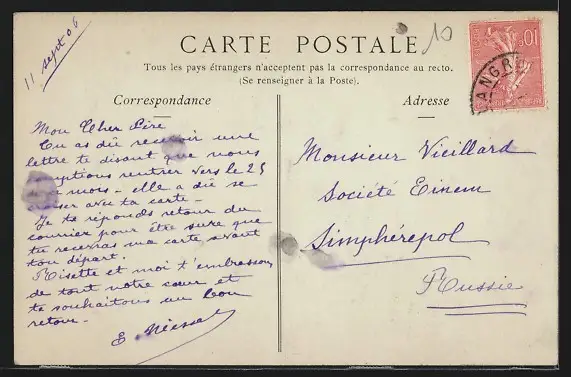 11 sept 06
10
CARTE POSTALE
Tous les pays étrangers n'acceptent pas la correspondance au recto.
(Se renseigner à la Poste).
Correspondance
Adresse
Mon Cher Père
Tu as dû recevoir une
lettre te disant que nous
comptions rentrer vers le 25
mois - elle a dû se
croiser avec ta carte -
Je te réponds retour du
courrier pour être sure que
tu recevras ma carte avant
ton départ.
Risette et moi t'embrassons
de tout notre cœur et
te souhaitons un bon
retour -
E.
Monsieur Vieillard
Société Einem
Simphérepol
Russie
10
ANGR